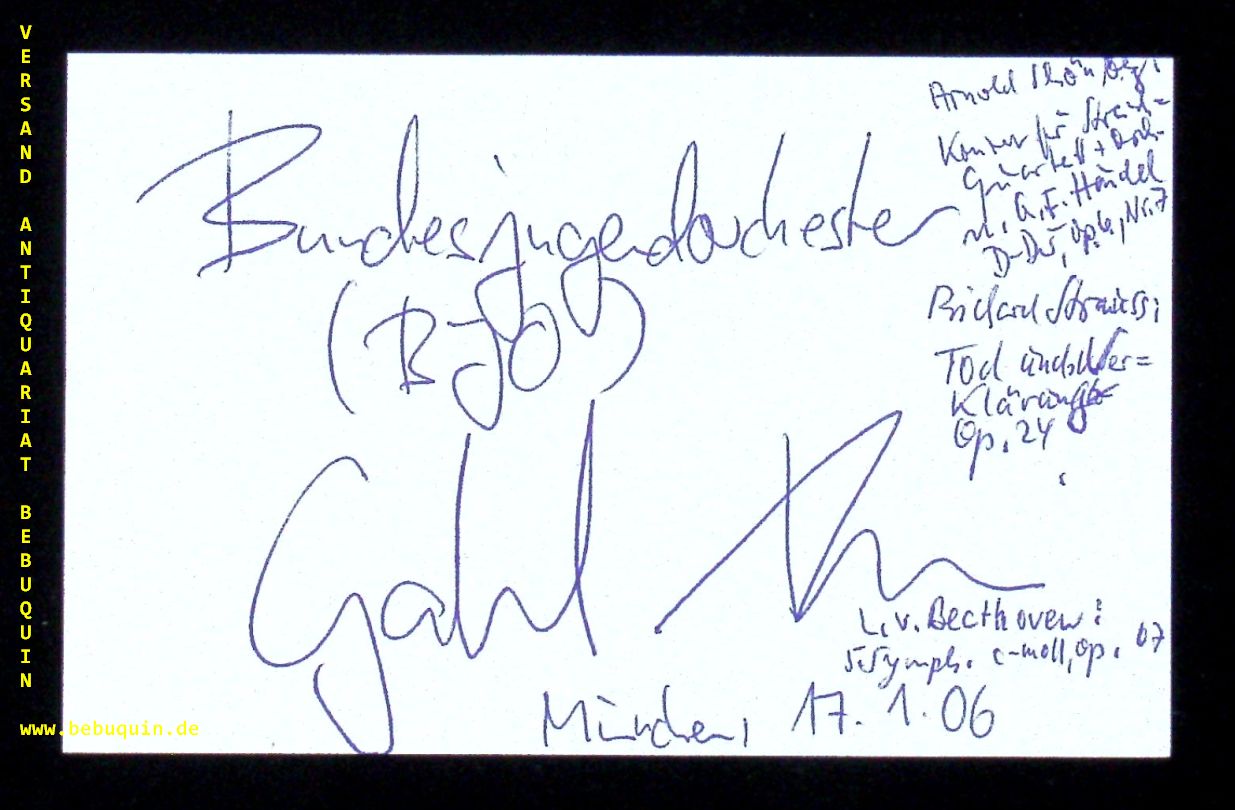 VERSAND ANTIQUARIAT BEBUQUIN
www.bebuquin.de
Bundesjugendorchester
(BJO)
Arnold Schönberg:
Konzert für Streich=
quartett + Orch.
n. G.F. Händel
D-Dur, op. 6, Nr. 7
Richard Strauss:
Tod und Ver=
klärung
Op. 24
L.v. Beethoven:
5. Symph. c-moll, op. 67
München, 17.1.06